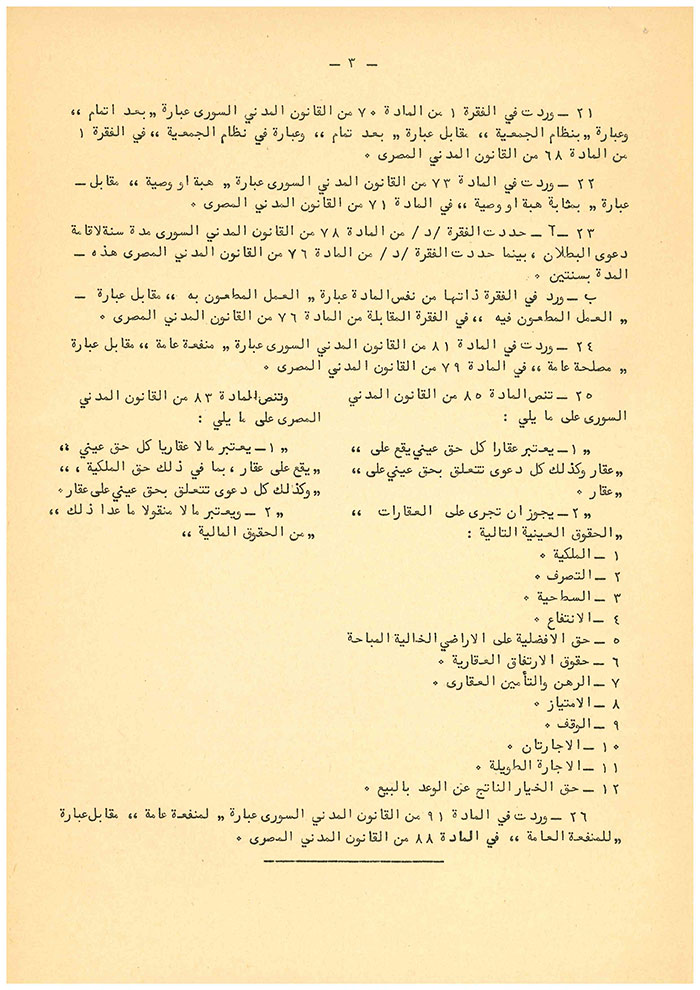 — ٣ —
٢١ — وردت في الفقرة ١ من المادة ٧٠ من القانون المدني السورى عبارة „ بعد اتمام „
وعبارة „ بنظام الجمعية „ مقابل عبارة „ بعد تمام „ وعبارة في نظام الجمعية „ في الفقرة ١
من المادة ٦٨ من القانون المدني المصرى ٠
٢٢ — وردت في المادة ٧٣ من القانون المدني السورى عبارة „ هبة او وصية „ مقابل —
عبارة „ بمثابة هبة او وصية „ في المادة ٧١ من القانون المدني المصرى ٠
٢٣ — آ — حددت الفقرة /د/ من المادة ٧٨ من القانون المدني السورى مدة سنة لاقامة
دعوى البطلان ، بينما حددت الفقرة /د/ من المادة ٧٦ من القانون المدني المصرى هذه —
المدة بسنتين ٠
ب — ورد في الفقرة ذاتها من نفس المادة عبارة „ العمل المطعون به „ مقابل عبارة —
„ العمل المطعون فيه „ في الفقرة المقابلة من المادة ٧٦ من القانون المدني المصرى ٠
٢٤ — وردت في المادة ٨١ من القانون المدني السورى عبارة „ منفعة عامة „ مقابل عبارة
„ مصلحة عامة „ في المادة ٧٩ من القانون المدني المصرى ٠
٢٥ — تنص المادة ٨٥ من القانون المدني
السورى على ما يلي :
„ ١ — يعتبر عقارا كل حق عيني يقع على „
„ عقار وكذلك كل دعوى تتعلق بحق عيني على „
„ عقار ٠
„ ٢ — يجوز ان تجرى على العقارات „
„ الحقوق العينية التالية :
١ — الملكية ٠
٢ — التصرف ٠
٣ — السطحية ٠
٤ — الانتفاع ٠
٥ — حق الافضلية على الاراضي الخالية المباحة
٦ — حقوق الارتفاق العقارية ٠
٧ — الرهن والتأمين العقارى ٠
٨ — الامتياز ٠
٩ — الوقف ٠
١٠ — الاجارتان ٠
١١ — الاجارة الطويلة ٠
١٢ — حق الخيار الناتج عن الوعد بالبيع ٠
وتنص المادة ٨٣ من القانون المدني
المصرى على ما يلي :
„ ١ — يعتبر مالا عقاريا كل حق عيني „
„ يقع على عقار ، بما في ذلك حق الملكية ، „
„ وكذلك كل دعوى تتعلق بحق عيني على عقار ٠
„ ٢ — ويعتبر مالا منقولا ما عدا ذلك „
„ من الحقوق المالية „
٢٦ — وردت في المادة ٩١ من القانون المدني السورى عبارة „ لمنفعة عامة „ مقابل عبارة
„ للمنفعة العامة „ في المادة ٨٨ من القانون المدني المصرى ٠